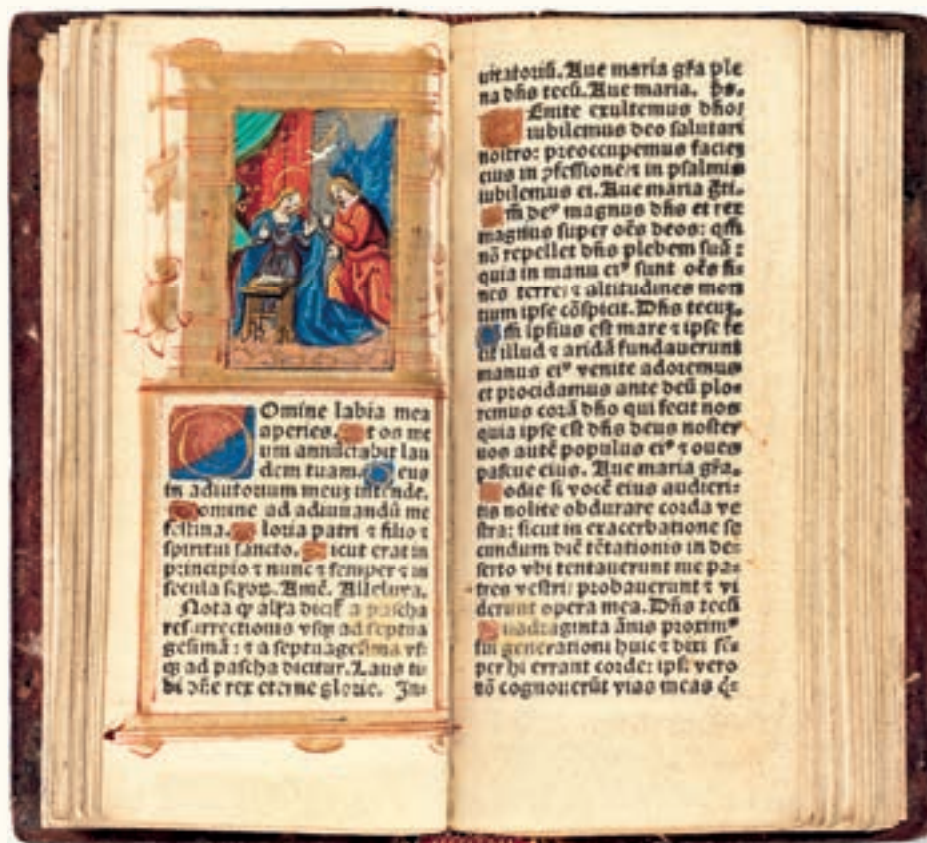 DOmine labia mea
aperies. Et os me
um annūciabit lau
dem tuam. Deus
in adiutorium meuꝫ intende.
Domine ad adiuuandū me
festina. Gloria patri ⁊ filio ⁊
spiritui sancto. Sicut erat in
principio ⁊ nunc ⁊ semper ⁊ in
secula Amē. Alleluya.
Nota qꝫ alľa dicit᷑ a pascha
resurrectionis vsqꝫ ad septua
gesimā: ⁊ a septuagesima vs
qꝫ ad pascha dicitur. Laus ti
bi dñe rex eterne glorie. In-
uitatoriū. Aue maria gr̄a ple
na dñs tecū. Aue maria. p̄s.
VEnite exultemus dño:
iubilemus deo salutari
nostro: preoccupemus faciē
eius in ꝓfessione: ⁊ in psalmis
iubilemus ei. Aue maria gr̄.
Qm̄ deꝰ magnus dñs et rex
magnus super oēs deos: qm̄
nō repellet dñs plebem suā:
quia in manu eiꝰ sunt oēs fi-
nes terre: ⁊ altitudines mon
tium ipse cōspicit. Dñs tecuꝫ.
Qm̄ ipsius est mare ⁊ ipse fe
cit illud ⁊ aridā fundauerunt
manus eiꝰ venite adoremus
et procidamus ante deū plo-
remus corā dño qui fecit nos
quia ipse est dñs deus noster
nos autē populus eiꝰ ⁊ oues
pascue eius. Aue maria gr̄a.
Hodie si vocē eius audieri-
tis nolite obdurare corda ve
stra: sicut in exacerbatione se
cundum diē tētationis in de-
serto vbi tentauerunt me pa-
tres vestri: probauerunt ⁊ vi
derunt opera mea. Dñs tecū
Quadraginta ānis proximꝰ
fui generationi huic ⁊ dixi sē-
per hi errant corde: ipsi vero
nō cognouerūt vias meas q̄-